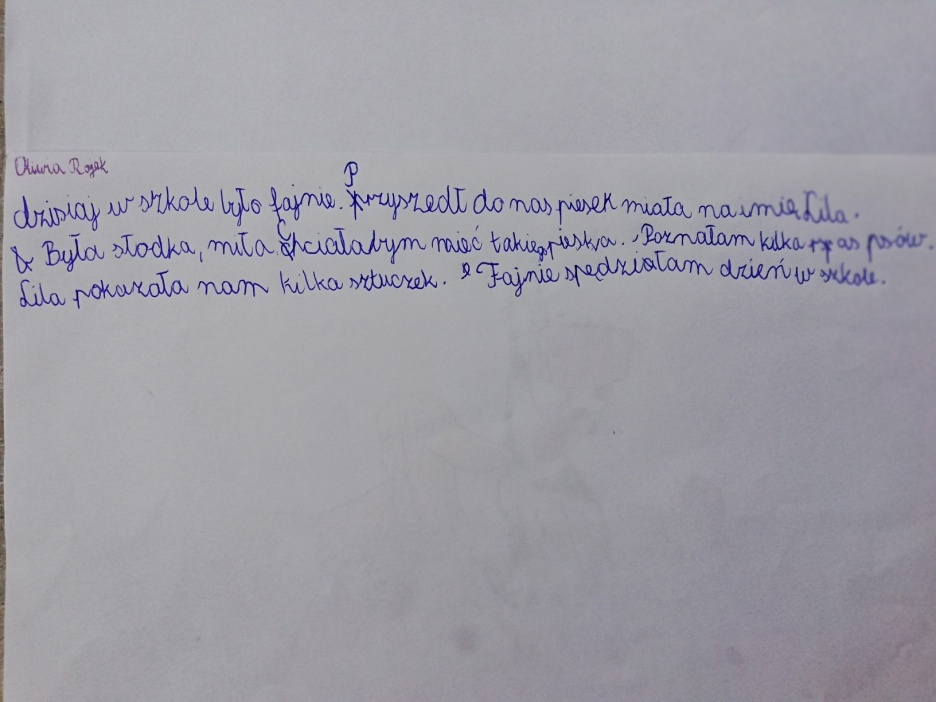 Oliwia Rojek
dzisiaj w szkole było fajnie. Przyszedł do nas piesek miała na imię Lila.
Była słodka, miła Chciałabym mieć takiego pieska. Poznałam kilka ras psów.
Lila pokazała nam kilka sztuczek. Fajnie spędziałam dzień w szkole.